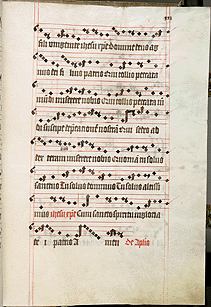 fili unigenite ihesu xpe domine deus ag
nus dei fi lius patris Qui tollis peccata
mundi miserere nobis Qui tollis peccata mū
di suscipe deprecationē nostrā Qui sedes ad
dexteram miserere nobis Quoniā tu solus
sanctus Tu solus dominus Tu solus altissi
mus ihesu xpe Cum sancto spiritu in gloria
de i patris A men De Aplis